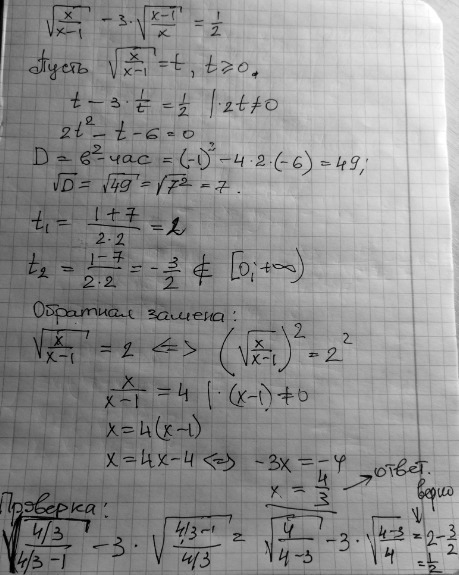 √(x/(x-1)) - 3·√((x-1)/x) = 1/2
Пусть √(x/(x-1)) = t, t ≥ 0.
t - 3·1/t = 1/2 |·2t ≠ 0
2t² - t - 6 = 0
D = b² - 4ac = (-1)² - 4·2·(-6) = 49;
√D = √49 = √7² = 7.
t₁ = (1+7)/(2·2) = 2
t₂ = (1-7)/(2·2) = -3/2 ∉ [0; +∞)
Обратная замена:
√(x/(x-1)) = 2 <=> (√(x/(x-1)))² = 2²
x/(x-1) = 4 |·(x-1) ≠ 0
x = 4(x-1)
x = 4x-4 <=> -3x = -4
x = 4/3 → ответ.
Проверка: верно
√((4/3)/(4/3-1)) - 3·√((4/3-1)/(4/3)) = √(4/(4-3)) - 3·√((4-3)/4) = 2 - 3/2
= 1/2